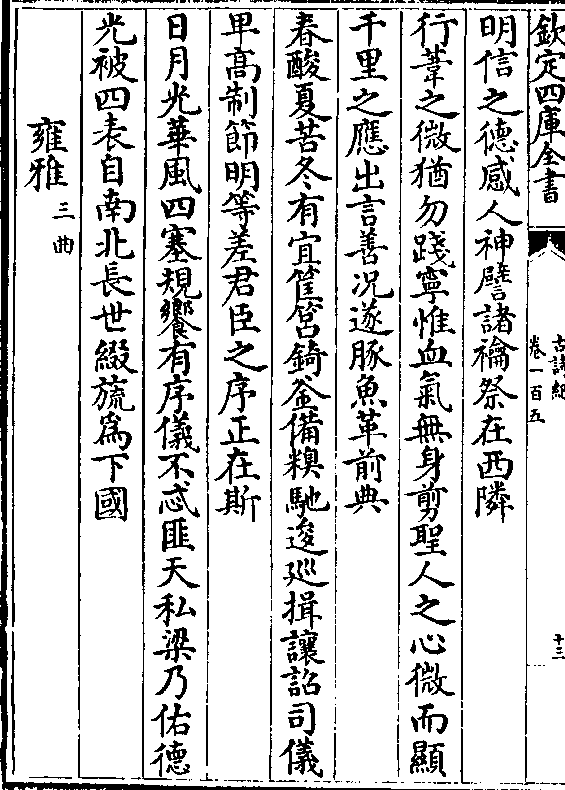 欽定四庫全書
古詩紀
卷一百五
十三
明信之德感人神譬諸禴祭在西隣
行葦之微猶勿踐寧惟血氣無身剪聖人之心微而顯
千里之應出言善况遂豚魚革前典
春酸夏苦冬有宜筐筥錡釜備糗馳逡巡揖讓詔司儀
卑高制節明等差君臣之序正在斯
日月光華風四塞規饗有序儀不忒匪天私梁乃佑德
光被四表自南北長世綴旒為下國
雍雅三曲